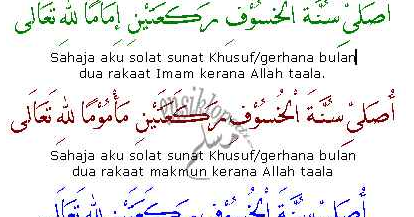 أُصَلِّيْ سُنَّةَ الْخُسُوْفِ رَكَعَتَيْنِ إِمَامًا لِلّٰهِ تَعَالَى
Sahaja aku solat sunat Khusuf/gerhana bulan
dua rakaat Imam kerana Allah taala.
أُصَلِّيْ سُنَّةَ الْخُسُوْفِ رَكَعَتَيْنِ مَأْمُوْمًا لِلّٰهِ تَعَالَى
Sahaja aku solat sunat Khusuf/gerhana bulan
dua rakaat makmun kerana Allah taala
أُصَلِّيْ سُنَّةَ الْخُسُوْفِ رَكَعَتَيْنِ لِلّٰهِ تَعَالَى